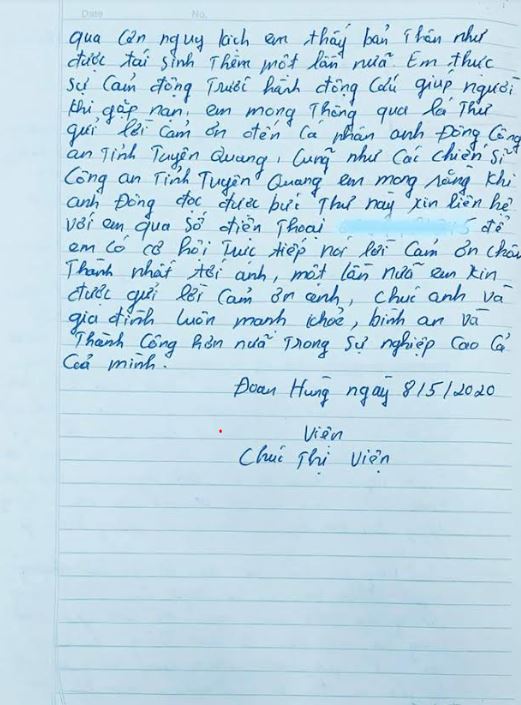 Date No.
qua cơn nguy kịch em thấy bản Thân như
được tái sinh Thêm một lần nữa. Em thực
sự Cảm động Trước hành động Cứu giúp người
khi gặp nạn, em mong Thông qua lá Thư
gửi lời Cảm ơn đến Cá nhân anh Đông Công
an Tỉnh Tuyên Quang, Cũng như Các chiến sĩ
Công an Tỉnh Tuyên Quang em mong rằng khi
anh Đông đọc được bức Thư này xin liên hệ
với em qua số điện Thoại 5 để
em có cơ hội Trực tiếp nói lời Cảm ơn chân
Thành nhất tới anh, một lần nữa em xin
được gửi lời Cảm ơn anh, chúc anh và
gia đình luôn mạnh khoẻ, bình an và
Thành Công hơn nữa Trong Sự nghiệp Cao Cả
Của mình.
Đoan Hùng ngày 8/5/2020
Viện
Chúc Thị Viện